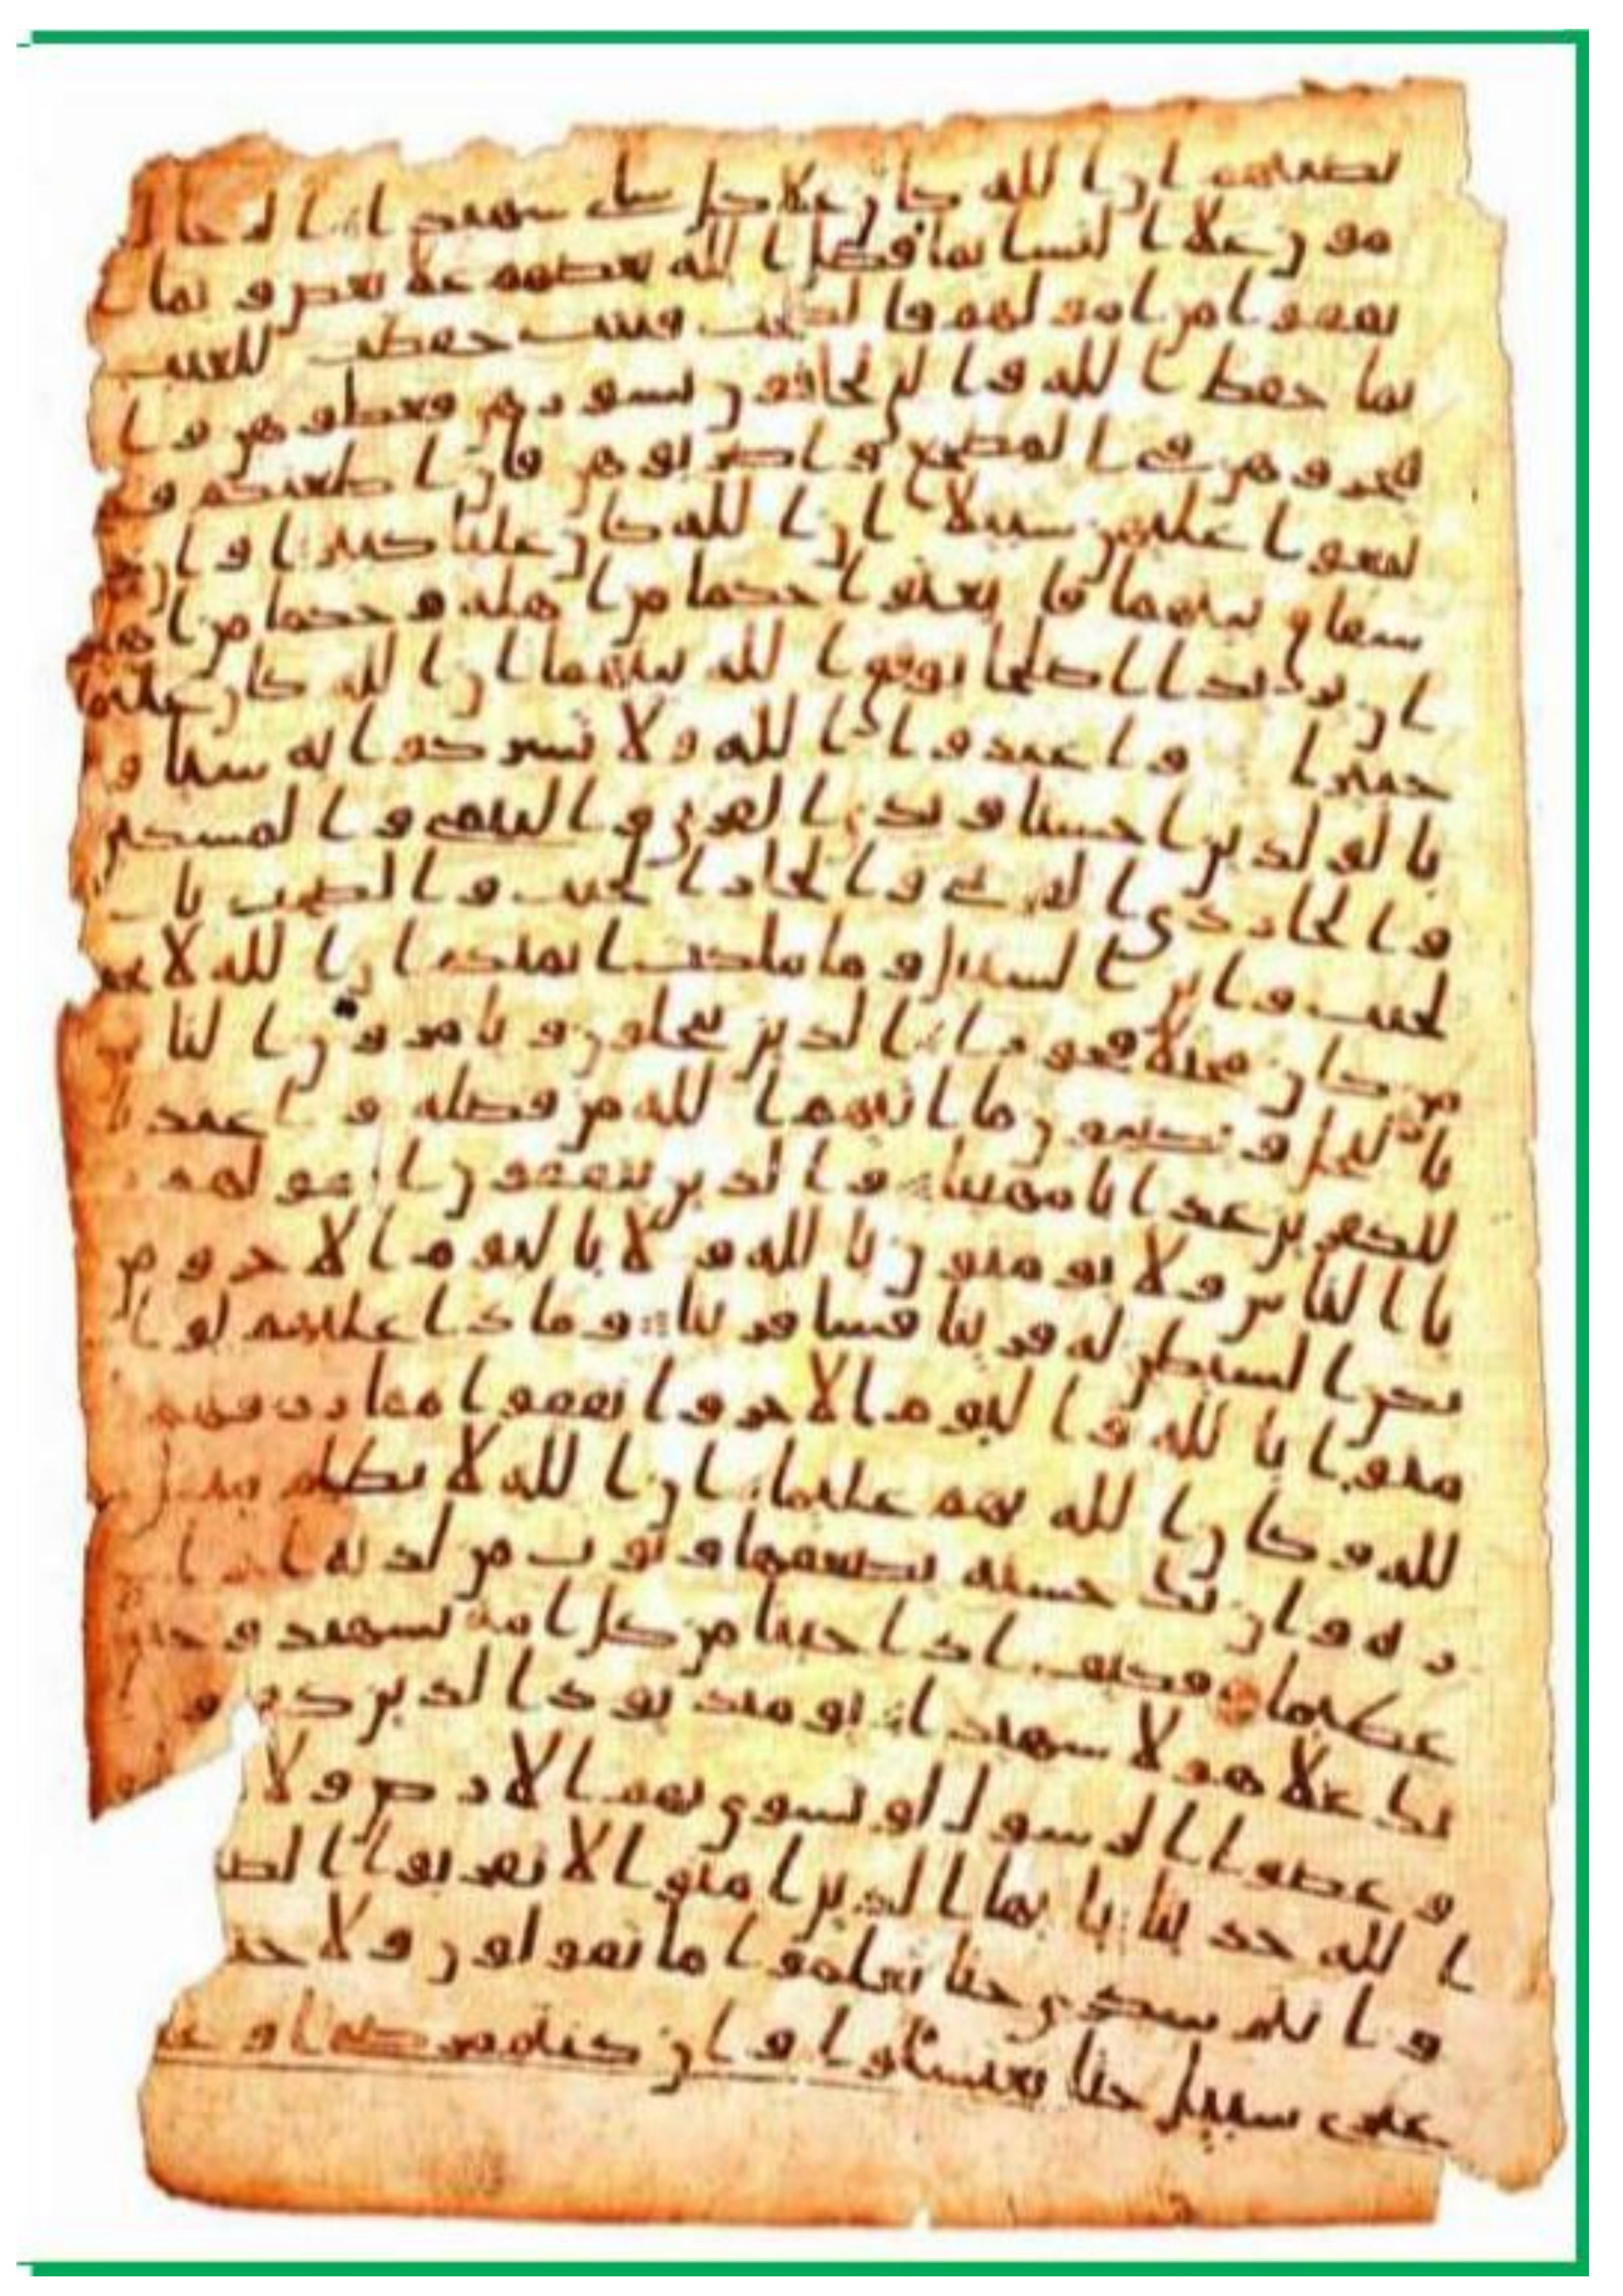 نصيبهم ان الله كان علا كل شى شهيدا الرجال
قومون علا النسا بما فضل الله بعضهم علا بعض وبما ا
نفقوا من امولهم فالصلحت قنتت حفظت للغيب
بما حفظ الله والتى تخافون نشوزهن فعظوهن وا
هجروهن فى المضجع واضربوهن فان اطعنكم فلا
تبغوا عليهن سبيلا ان الله كان عليا كبيرا وان
شقاق بينهما فابعثوا حكما من اهله وحكما من اهلها
ان يريدا اصلحا يوفق الله بينهما ان الله كان عليما
خبيرا واعبدوا الله ولا تشركوا به شيا و
بالولدين احسنا وبذى القربى واليتمى والمسكين
والجار ذى القربى والجار الجنب والصحب با
لجنب وابن السبيل وما ملكت ايمنكم ان الله لا يحب
من كان مختلا فخورا الذين يبخلون ويامرون النا
س بالبخل ويكتمون ما اتيهم الله من فضله واعتدنا
للكفرين عذابا مهينا والذين ينفقون امولهم
ريا الناس ولا يومنون بالله ولا باليوم الاخر ومن
يكن الشيطن له قرينا فسا قرينا وماذا عليهم لو ا
منوا بالله واليوم الاخر وانفقوا مما رزقهم ا
لله وكان الله بهم عليما ان الله لا يظلم مثقل
ذره وان تك حسنه يضعفها ويوت من لدنه اجرا
عظيما فكيف اذا جينا من كل امه بشهيد وجينا
بك علا هولا شهيدا يوميذ يود الذين كفروا
وعصوا الرسول لو تسوى بهم الارض ولا
الله حديثا يايها الذين امنوا لا تقربوا الصلوة
وانتم سكرى حتا تعلموا ما تقولون ولا جنبا
على سبيل حتا تغتسلوا وان كنتم مرضا او على